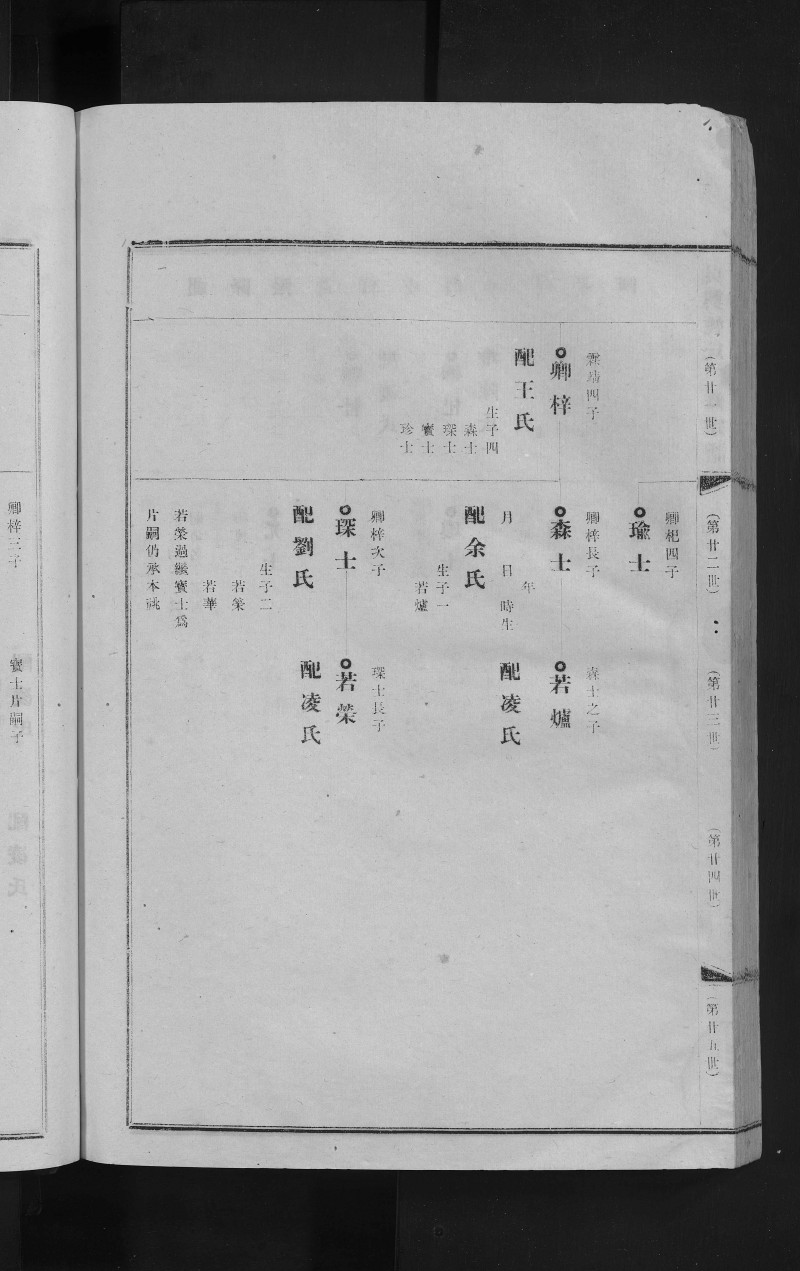 (第廿一世)
霖靖四子
卿梓
配王氏
生子四
森士
琛士
寶士
珍士
(第廿二世)
卿杞四子
瑜士
卿梓長子
森士
年
月 日 時生
配余氏
生子一
若爐
卿梓次子
琛士
配劉氏
生子二
若榮
若華
若榮過繼寶士爲
片嗣仍承本祧
(第廿三世)
森士之子
若爐
配凌氏
琛士長子
若榮
配凌氏
(第廿四世)
(第廿五世)
卿梓三子
寶士片嗣子
配凌氏